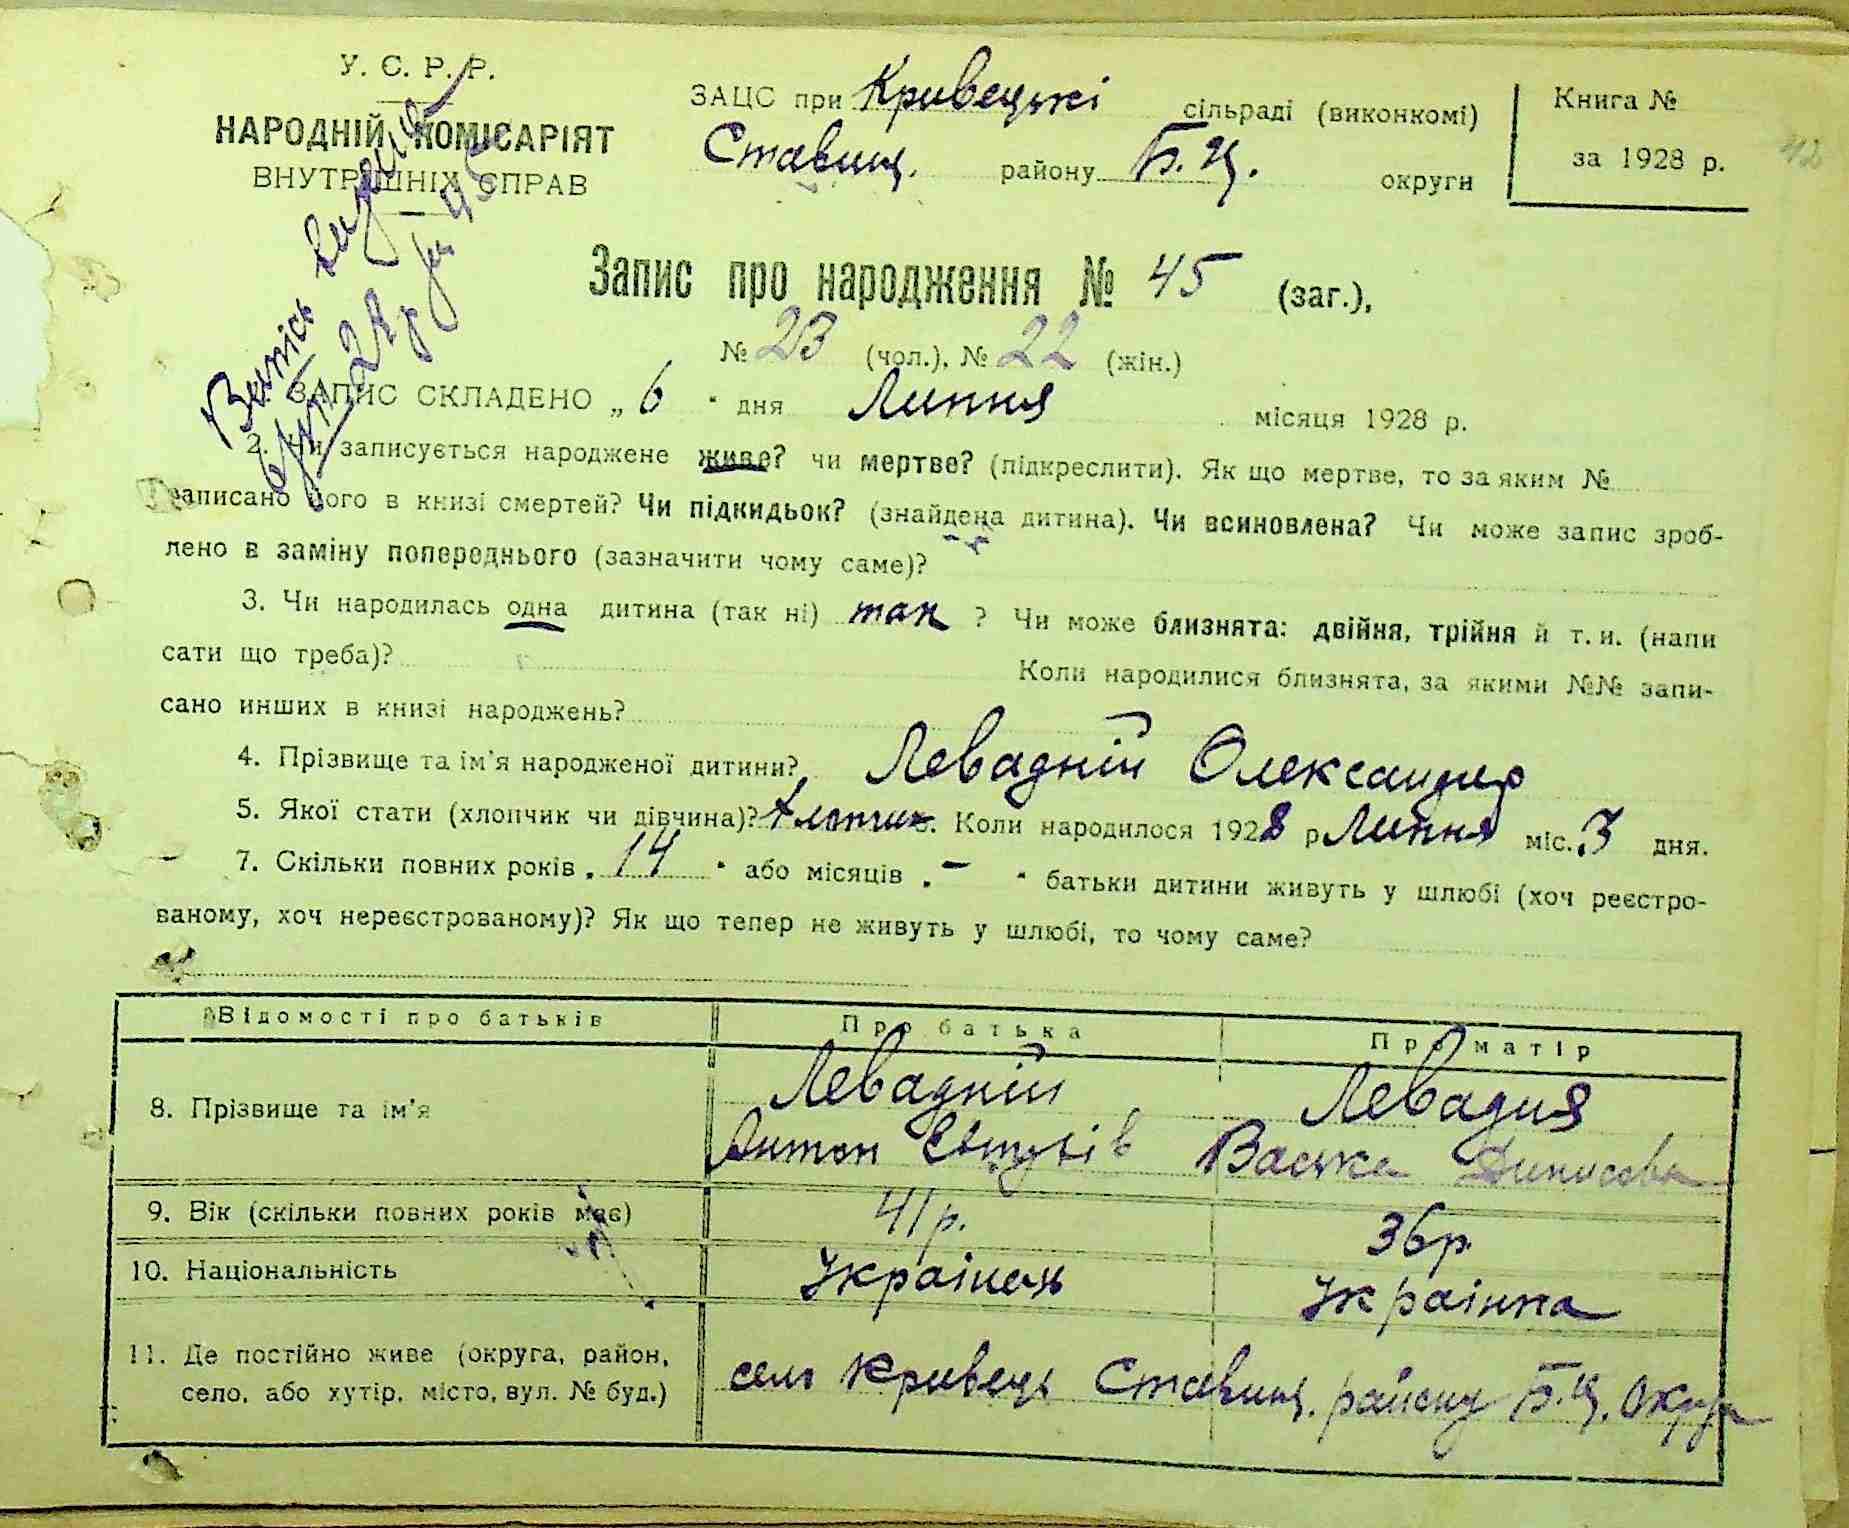 У. С. Р. Р.
НАРОДНІЙ КОМІСАРІЯТ
ВНУТРІШНІХ СПРАВ
ЗАЦС при Кривецькі сільраді (виконкомі)
Ставищ. району Б.Ц. округи
Книга №
за 1928 р.
42
Випись
Запис про народження № 45 (заг.),
№ 23 (чол.), № 22 (жін.)
ЗАПИС СКЛАДЕНО „ 6 " дня Липня місяця 1928 р.
2. Чи записується народжене живе? чи мертве? (підкреслити). Як що мертве, то за яким №
записано його в книзі смертей? Чи підкидьок? (знайдена дитина). Чи всиновлена? Чи може запис зроб-
лено в заміну попереднього (зазначити чому саме)?
3. Чи народилась одна дитина (так ні) так ? Чи може близнята: двійня, трійня й т. и. (напи
сати що треба)? Коли народилися близнята, за якими №№ запи-
сано инших в книзі народжень?
4. Прізвище та ім'я народженої дитини? Левадній Олександр
5. Якої стати (хлопчик чи дівчина)? Хлопчик 6. Коли народилося 1928 р Липня міс. 3 дня.
7. Скільки повних років „ 14 " або місяців „ – " батьки дитини живуть у шлюбі (хоч реєстро-
ваному, хоч нереєстрованому)? Як що тепер не живуть у шлюбі, то чому саме?
Відомості про батьків Про батька Про матір
8. Прізвище та ім'я Левадній Левадня
Антон Євтухів Васька Динисова
9. Вік (скільки повних років має) 41 р. 36 р.
10. Національність Українець Українка
11. Де постійно живе (округа, район,
село, або хутір, місто, вул. № буд.) село Кривець Ставищ. району Б.Ц. Округи